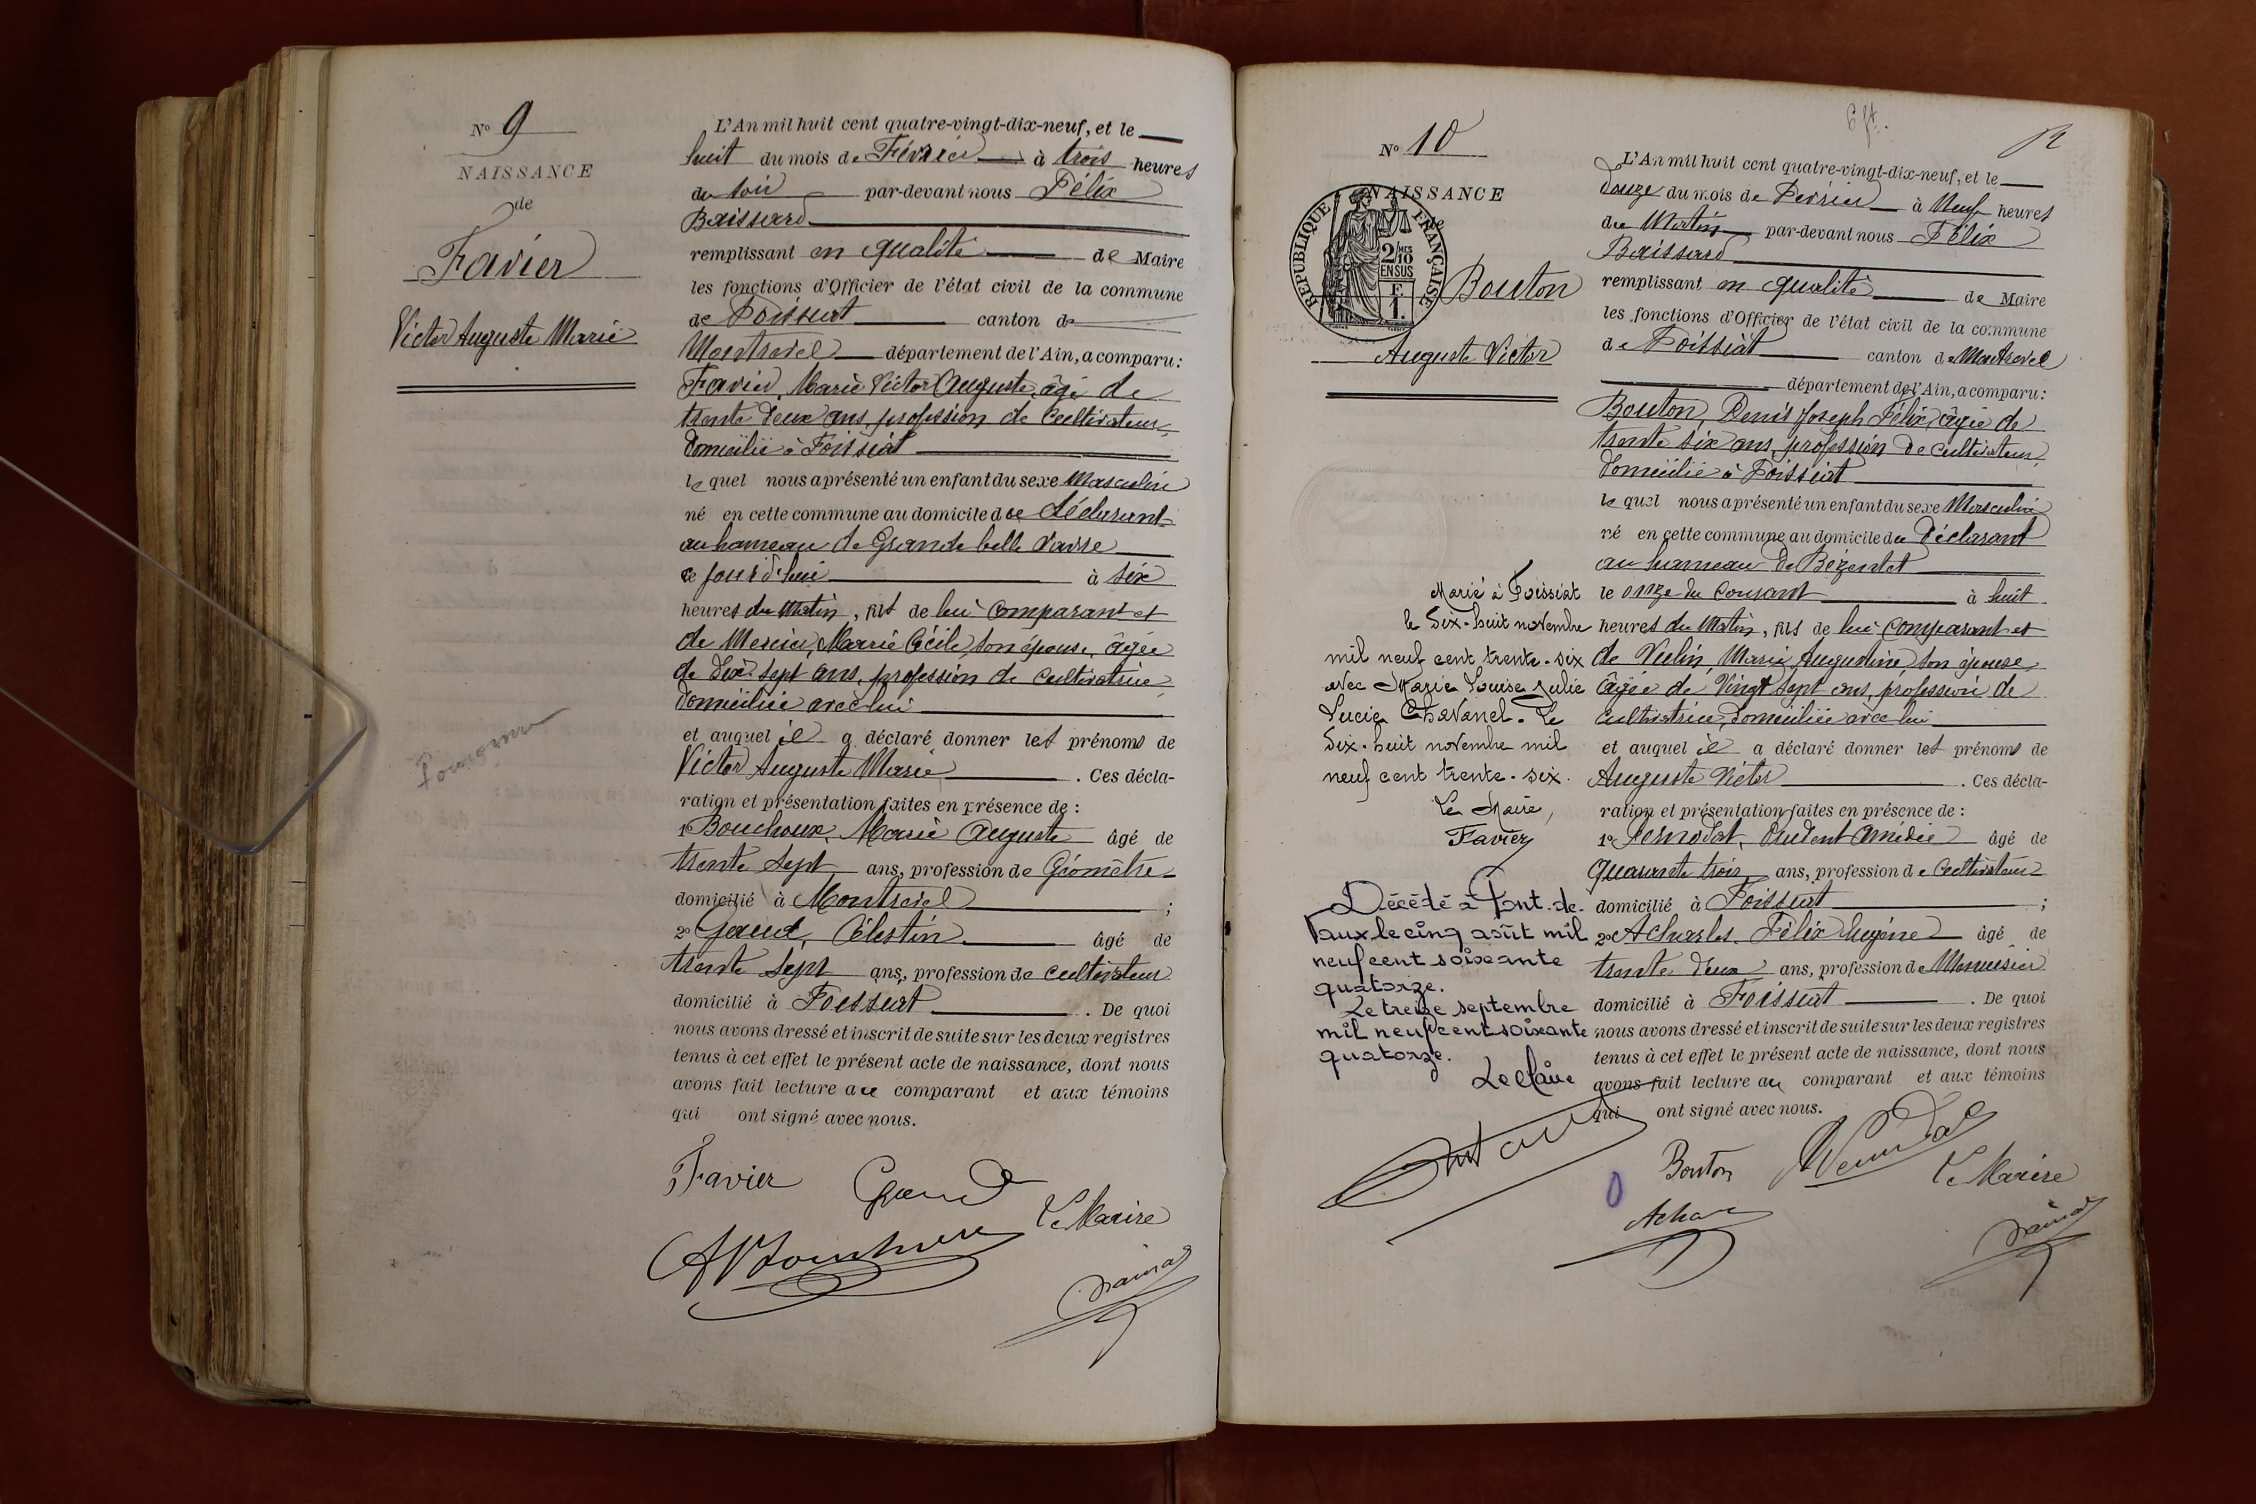 No 9
NAISSANCE
de
Favier
Victor Auguste Marie
L'An mil huit cent quatre-vingt-dix-neuf, et le
huit du mois de Février à trois heures
du soir par-devant nous Félix
Baissard
remplissant en qualité de Maire
les fonctions d'Officier de l'état civil de la commune
de Foissiat canton de
Montrevel département de l'Ain, a comparu:
Favier, Marie Victor Auguste, âgé de
trente deux ans, profession de Cultivateur
domicilié à Foissiat
lequel nous a présenté un enfant du sexe Masculin
né en cette commune au domicile du déclarant
au hameau de Grande belle Vavre
ce jourd'hui à six
heures du Matin, fils de lui Comparant et
de Mercier, Marie Cécile, son épouse, âgée
de dix-sept ans, profession de cultivatrice
domiciliée avec lui
et auquel il a déclaré donner les prénoms de
Victor Auguste Marie. Ces décla-
ration et présentation faites en présence de :
1o Bouchoux, Marie Auguste âgé de
trente sept ans, profession de Géomètre
domicilié à Montrevel ;
2o Célestin âgé de
trente sept ans, profession de cultivateur
domicilié à Foissiat. De quoi
nous avons dressé et inscrit de suite sur les deux registres
tenus à cet effet le présent acte de naissance, dont nous
avons fait lecture au comparant et aux témoins
qui ont signé avec nous.
Favier
Le Maire
No 10
NAISSANCE
de
REPUBLIQUE FRANÇAISE
2/10 MES
EN SUS
F.
1.
Bouton
Auguste Victor
L'An mil huit cent quatre-vingt-dix-neuf, et le
douze du mois de Février à Neuf heures
du Matin par-devant nous Félix
Baissard
remplissant en qualité de Maire
les fonctions d'Officier de l'état civil de la commune
de Foissiat canton de Montrevel
département de l'Ain, a comparu:
Bouton, Denis Joseph Félix, âgé de
trente six ans, profession de cultivateur
domicilié à Foissiat
lequel nous a présenté un enfant du sexe Masculin
né en cette commune au domicile du déclarant
au hameau de Bézentet
le onze du Courant à huit
heures du Matin, fils de lui comparant et
de Vulin, Marie Augustine son épouse,
âgée de Vingt sept ans, profession de
cultivatrice, domiciliée avec lui
et auquel il a déclaré donner les prénoms de
Auguste Victor. Ces décla-
ration et présentation faites en présence de :
1o Amédée âgé de
quarante trois ans, profession de Cultivateur
domicilié à Foissiat ;
2o Félix Eugène âgé de
trente deux ans, profession de Menuisier
domicilié à Foissiat. De quoi
nous avons dressé et inscrit de suite sur les deux registres
tenus à cet effet le présent acte de naissance, dont nous
avons fait lecture au comparant et aux témoins
qui ont signé avec nous.
Marié à Foissiat
le Dix-huit novembre
mil neuf cent trente-six
avec Marie Louise Julie
Lucie Chavanel. Le
Dix-huit novembre mil
neuf cent trente-six.
Le Maire,
Favier
Décédé à Pont-de-
Vaux le cinq août mil
neuf cent soixante
quatorze.
Le treize septembre
mil neuf cent soixante
quatorze.
Le Maire
Bouton
Le Maire